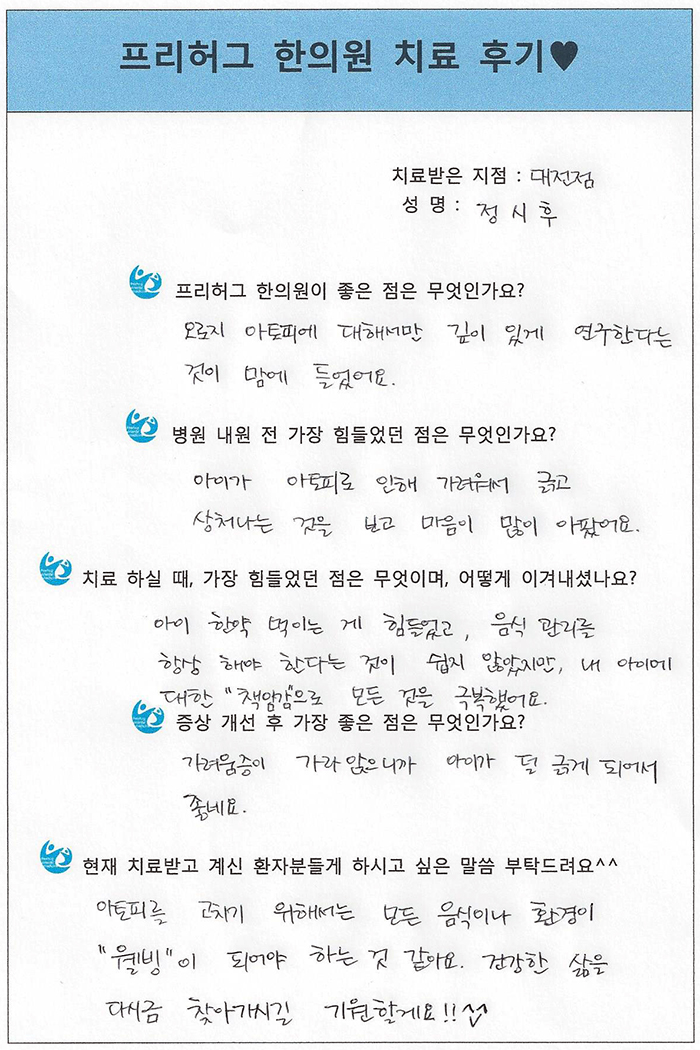 프리허그 한의원 치료 후기♥
치료받은 지점 : 대전점
성 명 : 정시후
프리허그 한의원이 좋은 점은 무엇인가요?
오로지 아토피에 대해서만 깊이 있게 연구한다는
것이 맘에 들었어요.
병원 내원 전 가장 힘들었던 점은 무엇인가요?
아이가 아토피로 인해 가려워서 긁고
상처나는 것을 보고 마음이 많이 아팠어요.
치료 하실 때, 가장 힘들었던 점은 무엇이며, 어떻게 이겨내셨나요?
아이 한약 먹이는 게 힘들었고, 음식 관리를
항상 해야 한다는 것이 쉽지 않았지만, 내 아이에
대한 "책임감"으로 모든 것을 극복했어요.
증상 개선 후 가장 좋은 점은 무엇인가요?
가려움증이 가라앉으니까 아이가 덜 긁게 되어서
좋네요.
현재 치료받고 계신 환자분들게 하시고 싶은 말씀 부탁드려요^^
아토피를 고치기 위해서는 모든 음식이나 환경이
"웰빙"이 되어야 하는 것 같아요. 건강한 삶을
다시금 찾아가시길 기원할게요!!